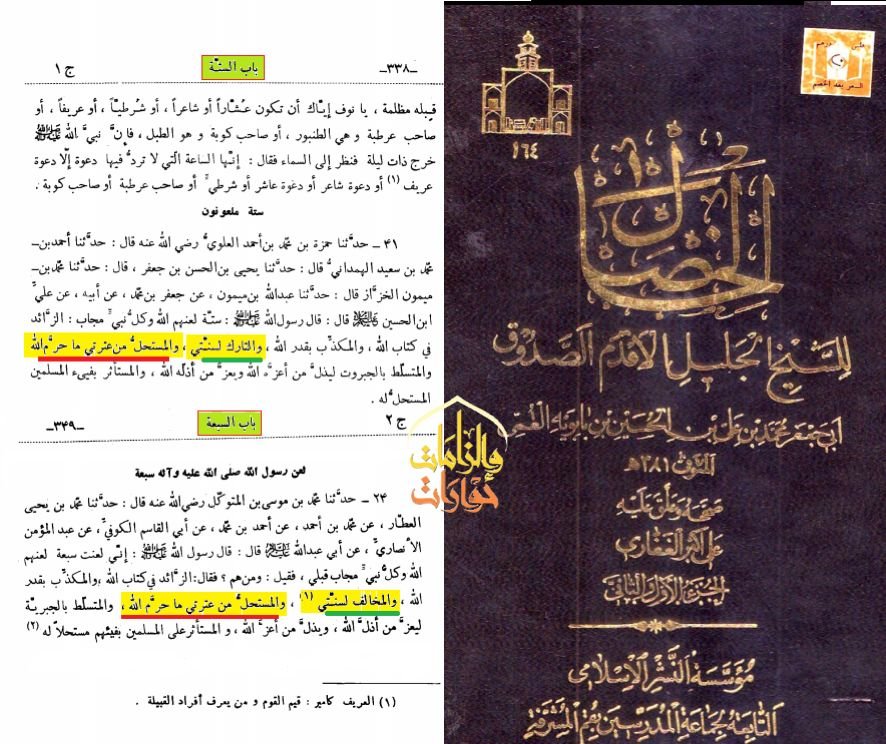 ج ١ باب الستة ـ٣٣٨ـ
قبله مظلمة ، يا نوف إيّاك أن تكون عشّاراً أو شاعراً ، أو شرطيّاً ، أو عريفاً ، أو
صاحب عرطبة و هي الطنبور ، أو صاحب كوبة و هو الطبل ، فإنَّ نبيَّ الله ﷺ
خرج ذات ليلة فنظر إلى السماء فقال : إنّها الساعة الّتي لا تردُّ فيها دعوة إلّا دعوة
عريف (١) أو دعوة شاعر أو دعوة عاشر أو شرطيٍّ أو صاحب عرطبة أو صاحب كوبة .
ستة ملعونون
٤١ ـ حدَّثنا حمزة بن محمد بن أحمد العلويُّ رضي الله عنه قال : حدَّثنا أحمد بن ـ
محمد بن سعيد الهمدانيُّ قال : حدَّثنا يحيى بن الحسن بن جعفر ، قال : حدَّثنا محمد بن ـ
ميمون الخزَّاز قال : حدَّثنا عبدالله بن ميمون ، عن جعفر بن محمد ، عن أبيه ، عن عليِّ
ابن الحسين قال : قال رسول الله ﷺ : ستّة لعنهم الله وكلُّ نبيٍّ مجاب : الزَّائد
في كتاب الله ، والمكذِّب بقدر الله ، والتارك لسنّتي ، والمستحلُّ من عترتي ما حرَّم الله
والمتسلّط بالجبروت ليذلَّ من أعزَّه الله ويعزَّ من أذلّه الله ، والمستأثر بفيىء المسلمين
المستحلُّ له .
ج ٢ باب السبعة ـ٣٤٩ـ
لعن رسول الله صلى الله عليه وآله سبعة
٢٤ ـ حدَّثنا محمد بن موسى بن المتوكّل رضي الله عنه قال : حدَّثنا محمد بن يحيى
العطّار ، عن محمد بن أحمد ، عن أحمد بن محمد ، عن أبي القاسم الكوفيِّ ، عن عبد المؤمن
الأنصاريِّ ، عن أبي عبدالله قال : قال رسول الله ﷺ : إنّي لعنت سبعة لعنهم
الله وكلُّ نبيٍّ مجاب قبلي ، فقيل : ومن هم ؟ فقال : الزَّائد في كتاب الله ، والمكذِّب بقدر
الله ، والمخالف لسنّتي (١) ، والمستحلُّ من عترتي ما حرَّم الله ، والمتسلّط بالجبريّة
ليعزَّ من أذلَّ الله ، ويذلَّ من أعزَّ الله ، و المستأثر على المسلمين بفيئهم مستحلاًّ له (٢)
(١) العريف كامير : قيم القوم و من يعرف أفراد القبيلة .
والزامات
حوارات
١٦٤
الخصال
للشيخ الجليل الأقدم الصدوق
أبي جعفر محمد بن علي بن الحسين بن بابويه القمي
المتوفى ٣٨١ هـ
صححه وعلق عليه
علي أكبر الغفاري
الجزء الأول والثاني
مؤسسة النشر الإسلامي
التابعة لجماعة المدرسين بقم المشرفة